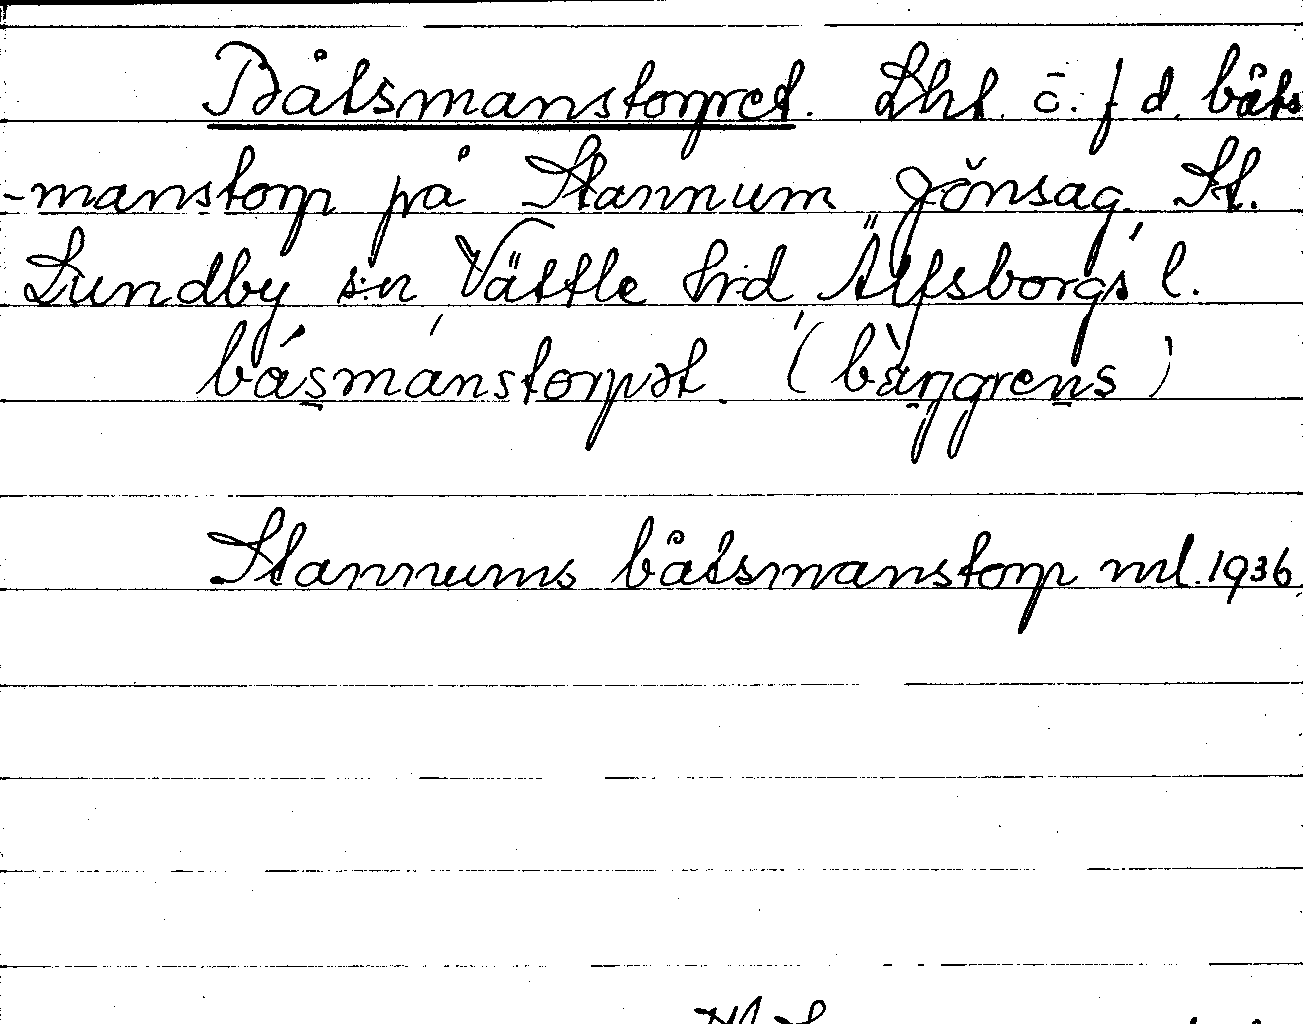 Båtsmanstorpet. Lht. o. f d. båts
-manstorp på Stannum Jönsag. St.
Lundby s:n Vättle h:d Älfsborgs l.
båsmánstorpət (bàŋgrens)
Stannums båtsmanstorp ml. 1936